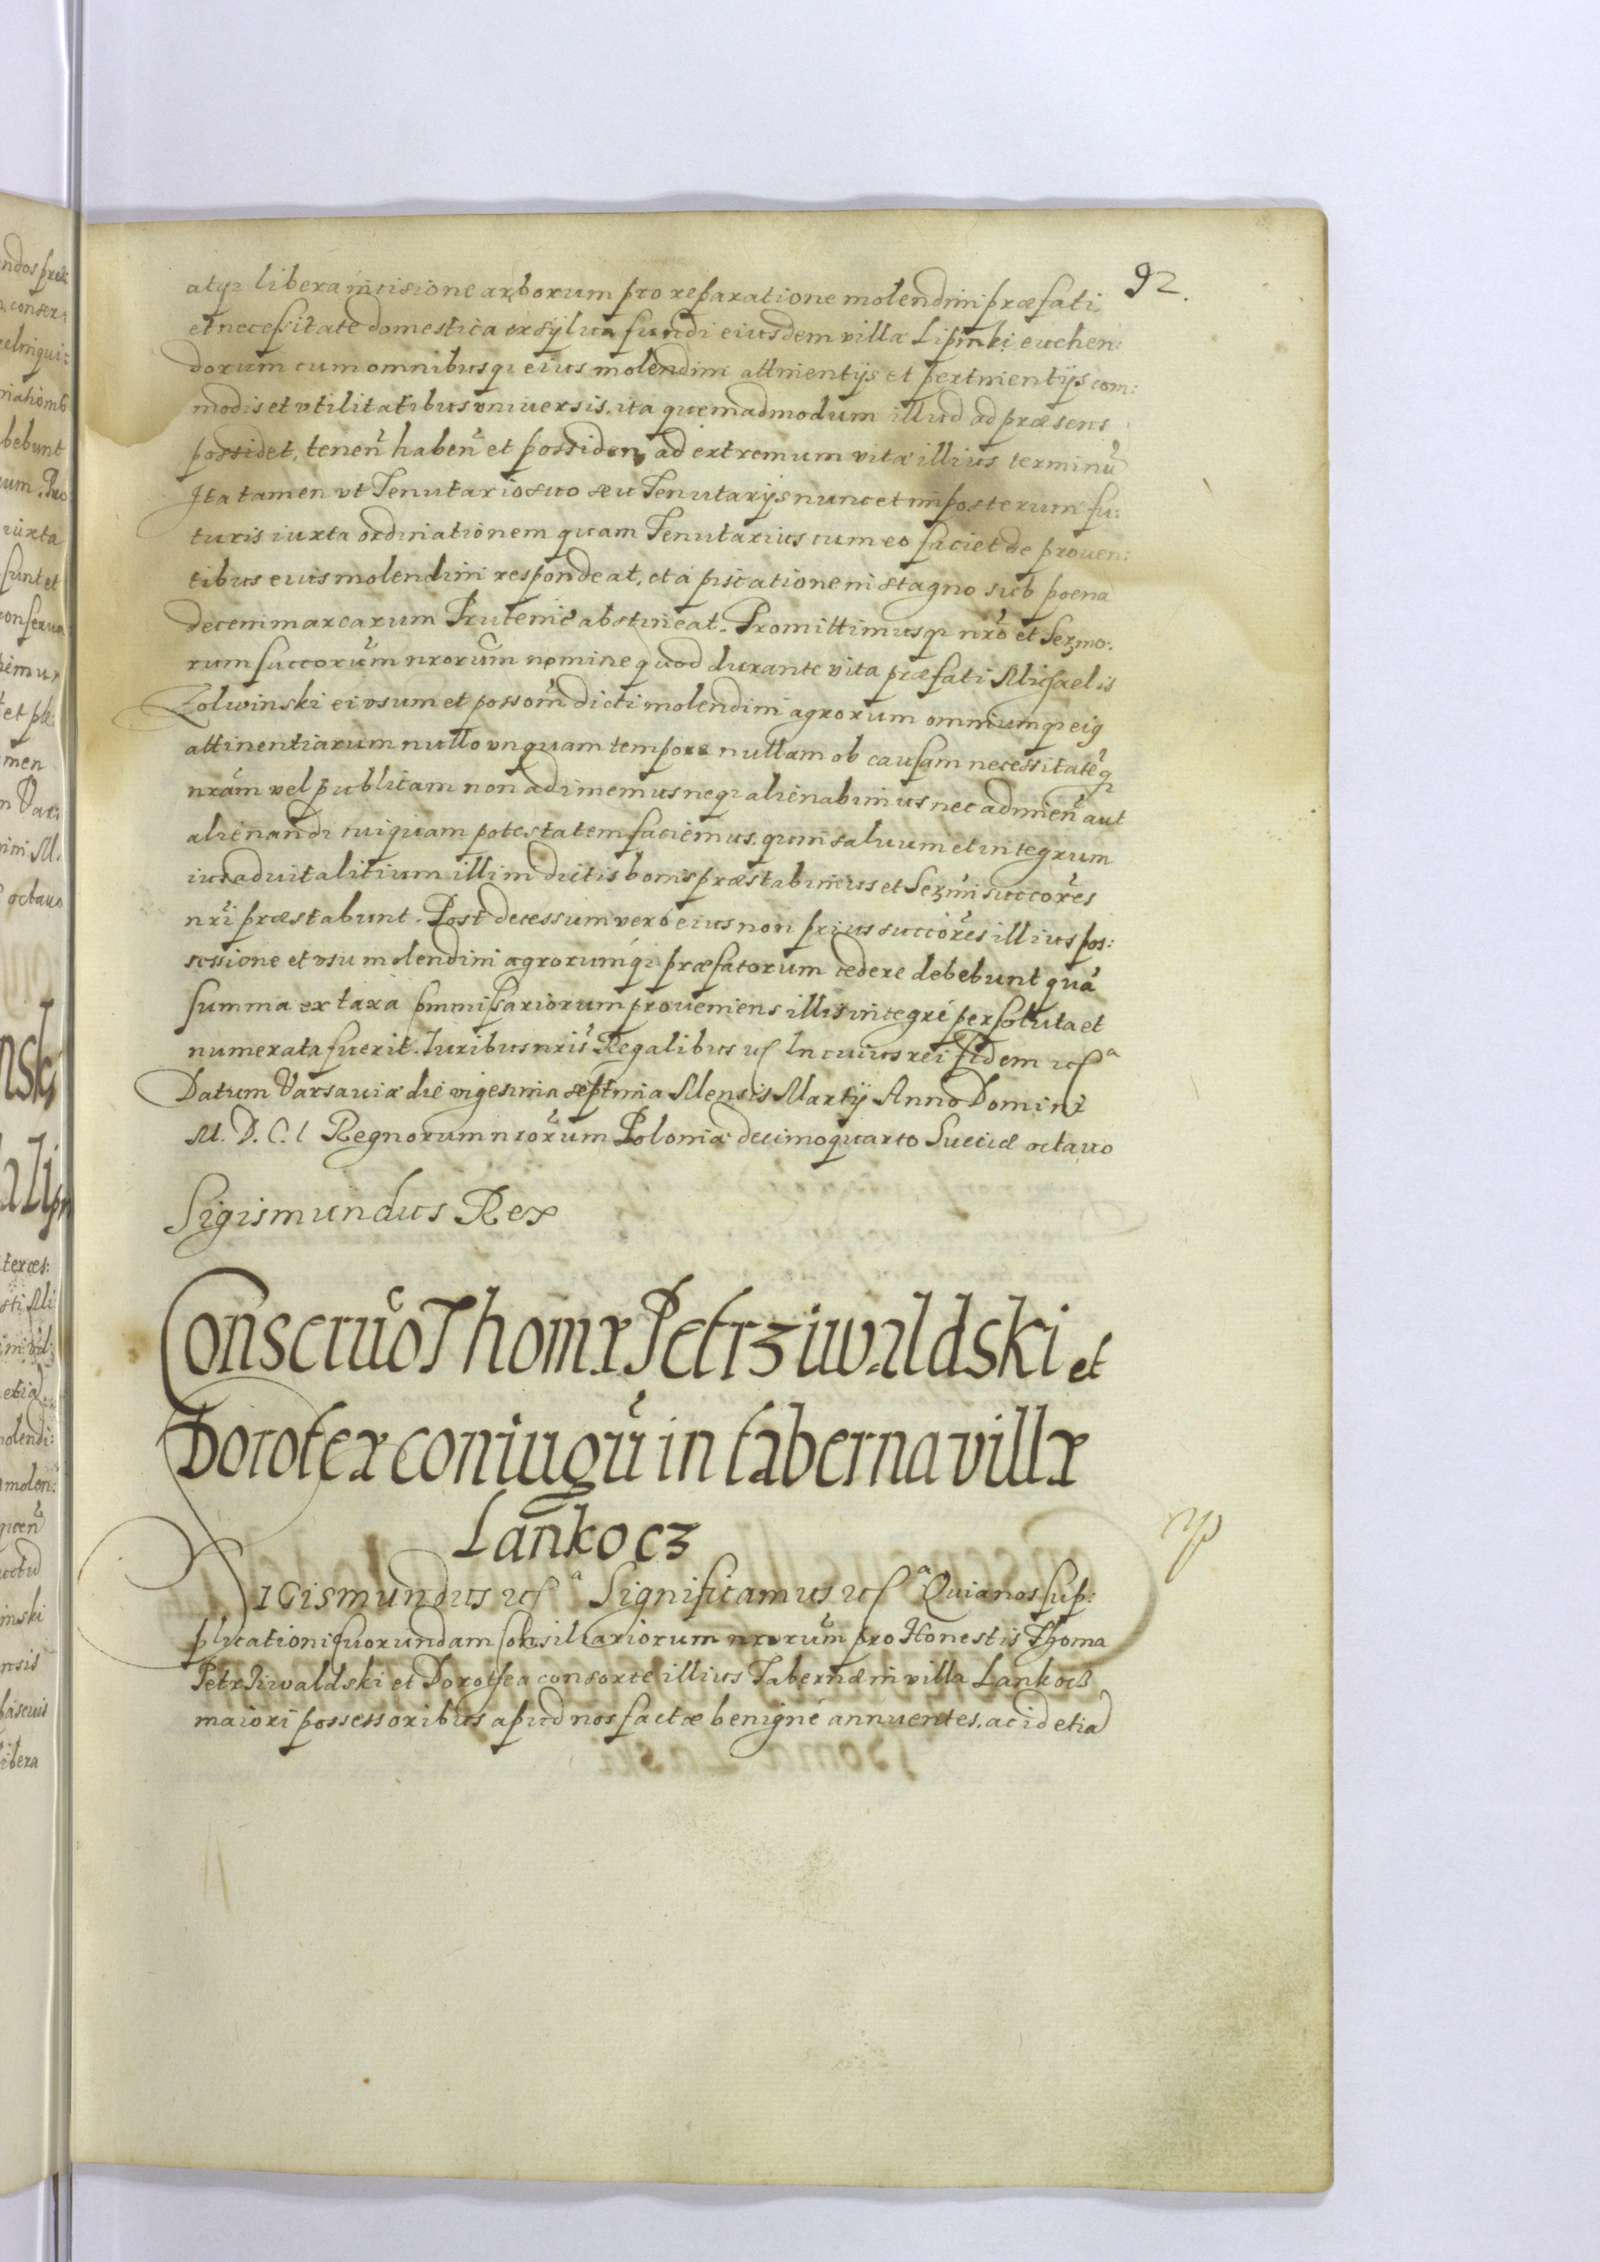 92.
atqȝ libera incisione arborum pro reparatione molendini præfati,
et necessitate domestica ex sylua fundi eiusdem villæ Lipinki euehen:
dorum cum omnibusqȝ eius molendini attinentijs et pertinentijs com:
modis et vtilitatibus vniuersis, ita quemadmodum illud ad præsens
possidet, tenen̄ haben̄ et possiden̄ ad extremum vitæ illius terminū
Ita tamen vt Tenutario suo seu Tenutarijs nunc et imposterum fu:
turis iuxta ordinationem quam Tenutarius cum eo faciet de prouen:
tibus euis molendini respondeat, et á piscatione in stagno sub poena
decem marcarum Prutenic̄ abstineat. Promittimusqȝ nrō et Serm̄o:
rum succorūm nrorūm nomine quod durante vita præfati Michaelis
Zolwinski ei vsum et possom̄ dicti molendini agrorum omniumqȝ eiȝ
attinentiarum nullo vnquam tempore nullam ob causam necessitatēqȝ
nrām vel publicam non adimemus neqȝ alienabimus nec adimen̄ aut
alienandi cuiquam potestatem faciemus, quin saluum et integrum
ius aduitalitium illi in dictis bonis præstabimus et Sermī succorēs
nrī præstabunt. Post decessum veró eius non prius succorēs illius pos:
sessione et vsu molendini agrorumqȝ præfatorum cedere debebunt quá
summa ex taxa Commissariorum proueniens illis integré persoluta et
numerata fuerit. Iuribus nrīs Regalibus etc In cuius rei fidem etc a
Datum Varsauiæ die vigesima septima Mensis Martij Anno Domini
M. D. C. I Regnorum nrorūm Poloniæ decimoquarto Sueciæ octauo
Sigismundus Rex
Consensus Thomæ Petrziwaldski et
Doroteæ coniugū in taberna villæ
Lankocz
SIGismundus etc a Significamus etc a Quia nos sup:
plicationi quorundam Consiliariorum nrorūm pro Honestis Thoma
Petrziwaldski et Dorothea consorte illius Tabernæ in villa Lankocz
maiori possessoribus apud nos factæ benigné annuentes, ac id etiā